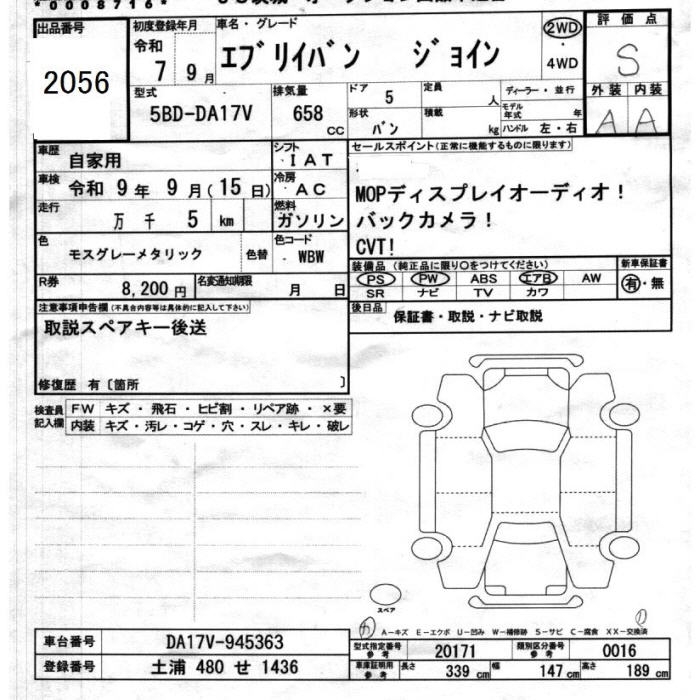 *0008716*
出品番号
2056
初度登録年月
令和
7 9月
車名・グレード
エブリイバン ジョイン
2WD
・
4WD
評価点
S
型式
5BD-DA17V
排気量
658
CC
ドア
5
形状
バン
定員
人
積載
kg
ディーラー・並行
モデル年式 年
ハンドル 左・右
外装 内装
A A
車歴
自家用
シフト
・IAT
車検
令和 9年 9月(15日)
冷房
・AC
走行
万 千 5 km
燃料
ガソリン
色
モスグレーメタリック
色替
色コード
・WBW
R券
8,200円
名変通知期限
月 日
セールスポイント(正常に機能するものに限ります)
MOPディスプレイオーディオ!
バックカメラ!
CVT!
装備品(純正品に限り○をつけてください)
PS PW ABS エアB AW
SR ナビ TV カワ
新車保証書
有・無
後日品
保証書・取説・ナビ取説
注意事項申告欄(不具合内容等は具体的に記入して下さい)
取説スペアキー後送
修復歴 有〔箇所 〕
検査員
記入欄
FW キズ・飛石・ヒビ割・リペア跡・×要
内装 キズ・汚レ・コゲ・穴・スレ・キレ・破レ
スペア
A-キズ E-エクボ U-凹み W-補修跡 S-サビ C-腐食 XX-交換済
車台番号
DA17V-945363
登録番号
土浦 480 せ 1436
型式指定番号
参考
20171
類別区分番号
参考
0016
車庫証明用
参考
長さ 339 cm 幅 147 cm 高さ 189 cm